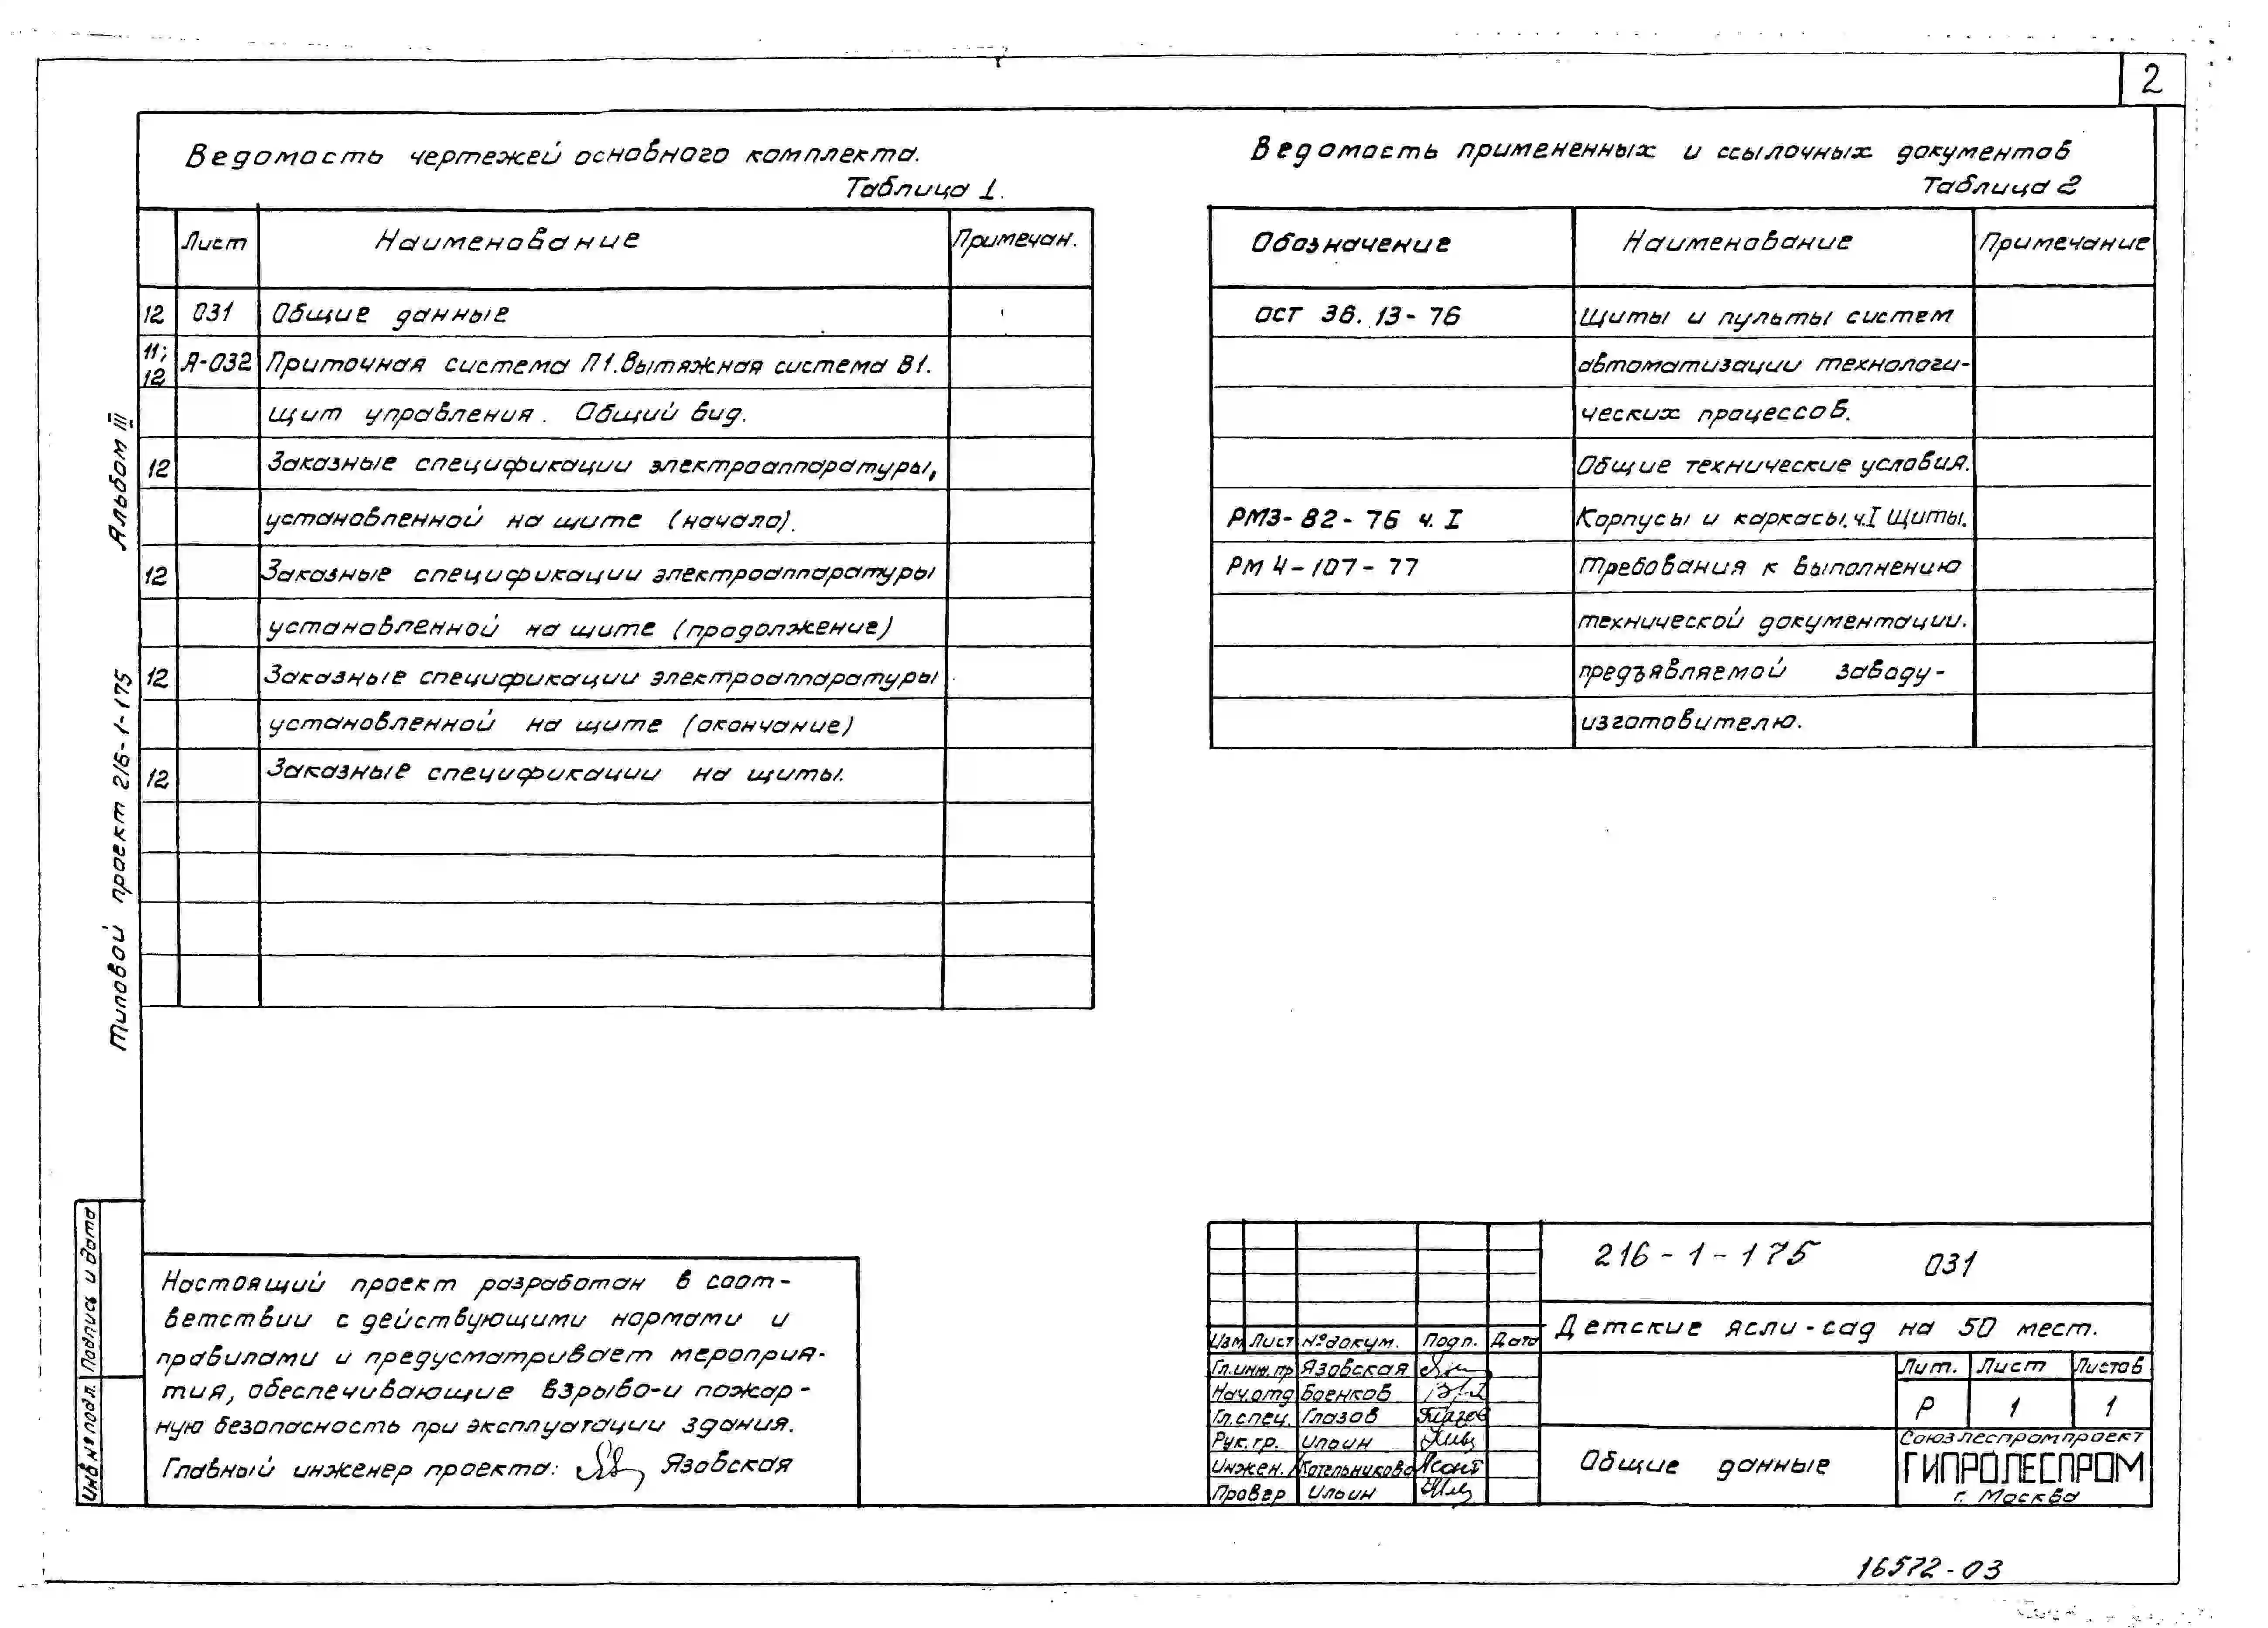 2
Ведомость чертежей основного комплекта.
Таблица 1.
Лист Наименование Примечан.
12 031 Общие данные
11; 12 Я-032 Приточная система П1. Вытяжная система В1.
щит управления. Общий вид.
12 Заказные спецификации электроаппаратуры,
установленной на щите (начало).
12 Заказные спецификации электроаппаратуры
установленной на щите (продолжение)
12 Заказные спецификации электроаппаратуры
установленной на щите (окончание)
12 Заказные спецификации на щиты.
Ведомость примененных и ссылочных документов
Таблица 2
Обозначение Наименование Примечание
ОСТ 36.13-76 Щиты и пульты систем
автоматизации технологи-
ческих процессов.
Общие технические условия.
РМ3-82-76 ч. I Корпусы и каркасы. ч.I Щиты.
РМ 4-107-77 Требования к выполнению
технической документации.
предъявляемой заводу-
изготовителю.
Альбом III
Типовой проект 216-1-175
Подпись и дата
Инв № подл.
Настоящий проект разработан в соот-
ветствии с действующими нормами и
правилами и предусматривает мероприя-
тия, обеспечивающие взрыво-и пожар-
ную безопасность при эксплуатации здания.
Главный инженер проекта: Язовская
216-1-175 031
Детские ясли-сад на 50 мест.
Изм Лист № докум. Подп. Дата
Гл.инж.пр Язовская
Нач.отд Боенков
Гл.спец. Глазов
Рук.гр. Ильин
Инжен. Котельникова
Провер Ильин
Лит. Лист Листов
Р 1 1
Общие данные
Союзлеспромпроект
ГИПРОЛЕСПРОМ
г. Москва
16572-03